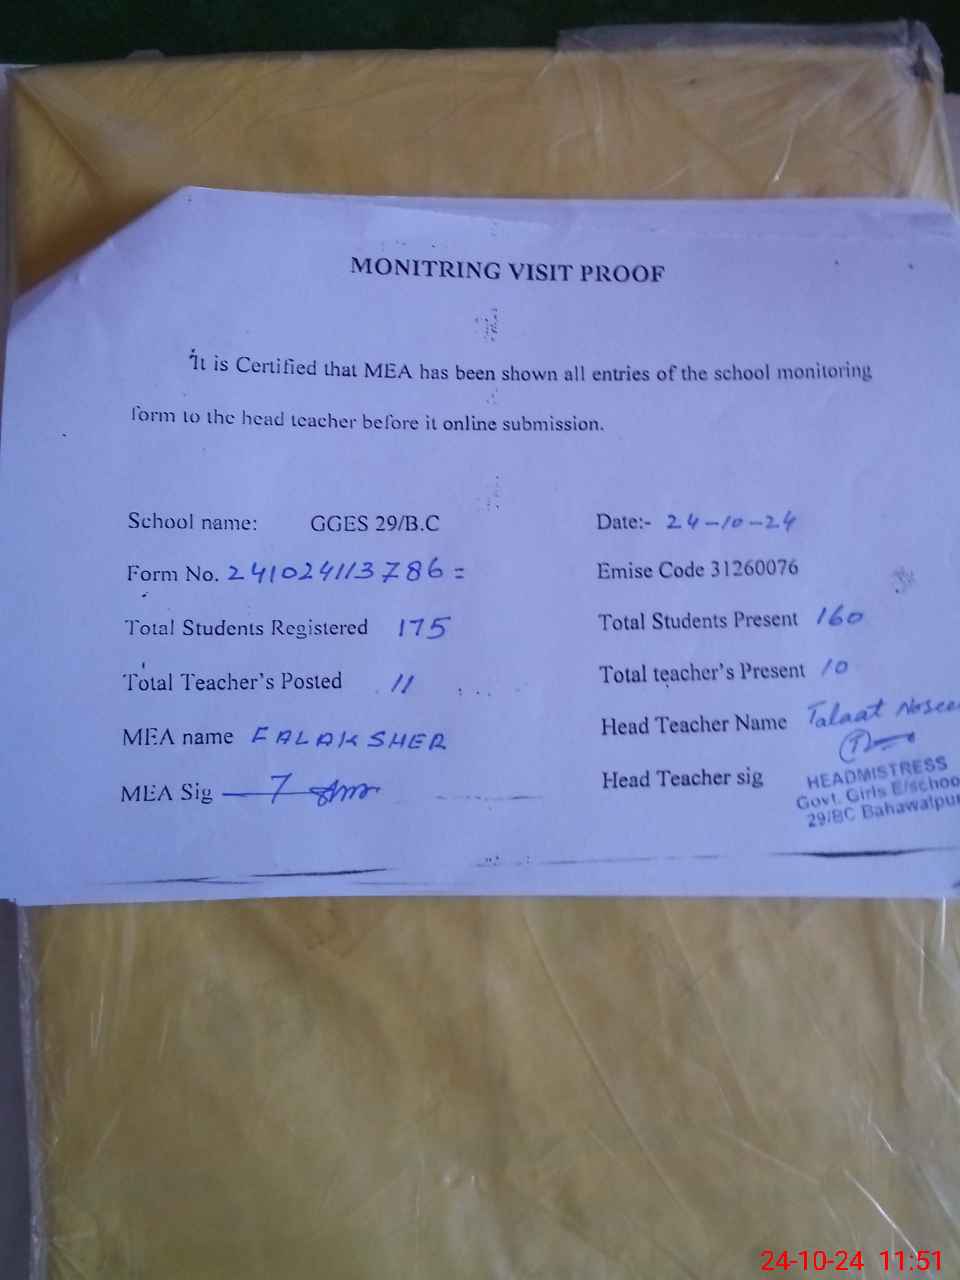 MONITRING VISIT PROOF
It is Certified that MEA has been shown all entries of the school monitoring
form to the head teacher before it online submission.
School name: GGES 29/B.C Date:- 24-10-24
Form No. 241024113786= Emise Code 31260076
Total Students Registered 175 Total Students Present 160
Total Teacher's Posted 11 Total teacher's Present 10
MEA name FALAK SHER Head Teacher Name Talaat
MEA Sig Head Teacher sig
HEADMISTRESS
Govt. Girls E/schoo
29/BC Bahawalpur
24-10-24 11:51